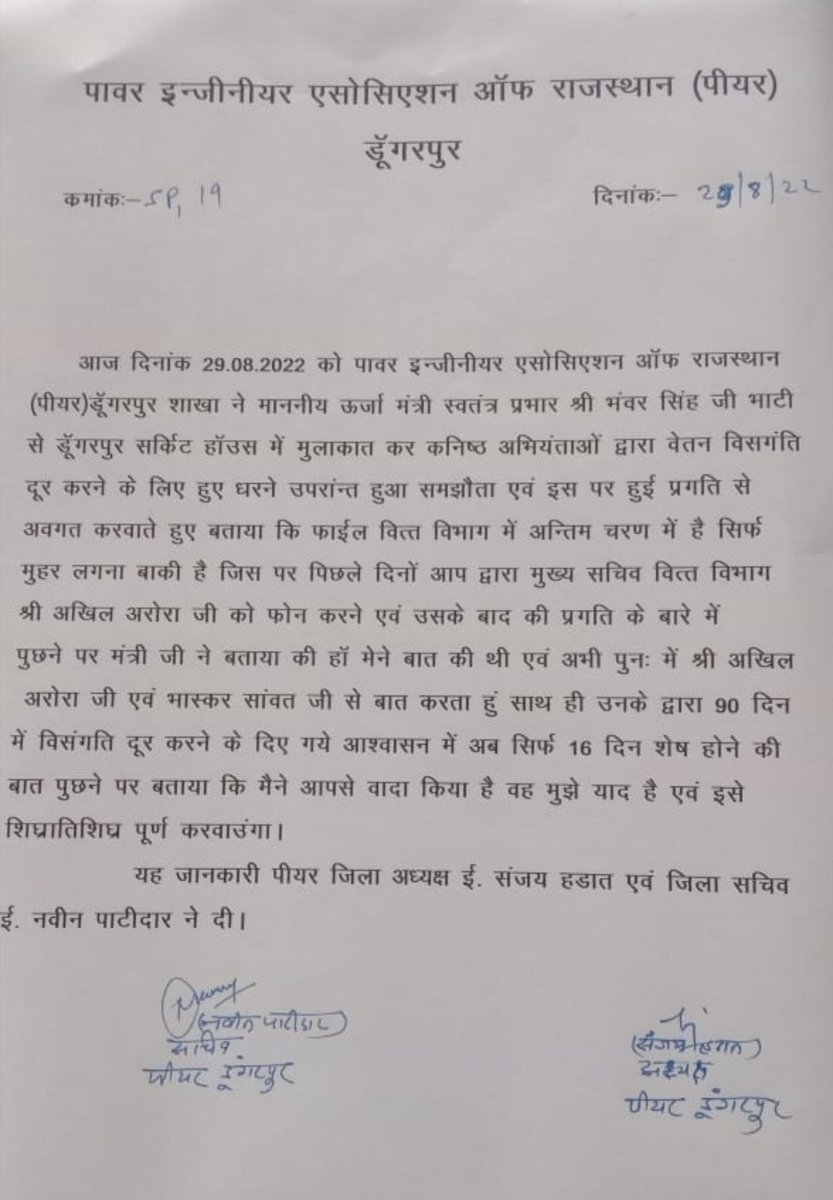 पावर इन्जीनीयर एसोसिएशन ऑफ राजस्थान (पीयर)
डूॅगरपुर
कमांकः– SP, 19 दिनांकः– 29/8/22
आज दिनांक 29.08.2022 को पावर इन्जीनीयर एसोसिएशन ऑफ राजस्थान
(पीयर)डूॅगरपुर शाखा ने माननीय ऊर्जा मंत्री स्वतंत्र प्रभार श्री भंवर सिंह जी भाटी
से डूॅगरपुर सर्किट हॉउस में मुलाकात कर कनिष्ठ अभियंताओं द्वारा वेतन विसगंति
दूर करने के लिए हुए धरने उपरांन्त हुआ समझौता एवं इस पर हुई प्रगति से
अवगत करवाते हुए बताया कि फाईल वित्त विभाग में अन्तिम चरण में है सिर्फ
मुहर लगना बाकी है जिस पर पिछले दिनों आप द्वारा मुख्य सचिव वित्त विभाग
श्री अखिल अरोरा जी को फोन करने एवं उसके बाद की प्रगति के बारे में
पुछने पर मंत्री जी ने बताया की हॉ मेने बात की थी एवं अभी पुनः में श्री अखिल
अरोरा जी एवं भास्कर सांवत जी से बात करता हुं साथ ही उनके द्वारा 90 दिन
में विसंगति दूर करने के दिए गये आश्वासन में अब सिर्फ 16 दिन शेष होने की
बात पुछने पर बताया कि मैने आपसे वादा किया है वह मुझे याद है एवं इसे
शिघ्रातिशिघ्र पूर्ण करवाउंगा।
यह जानकारी पीयर जिला अध्यक्ष ई. संजय हडात एवं जिला सचिव
ई. नवीन पाटीदार ने दी।
(नवीन पाटीदार)
सचिव
पीयर डूंगरपुर
(संजय हडात)
अध्यक्ष
पीयर डूंगरपुर